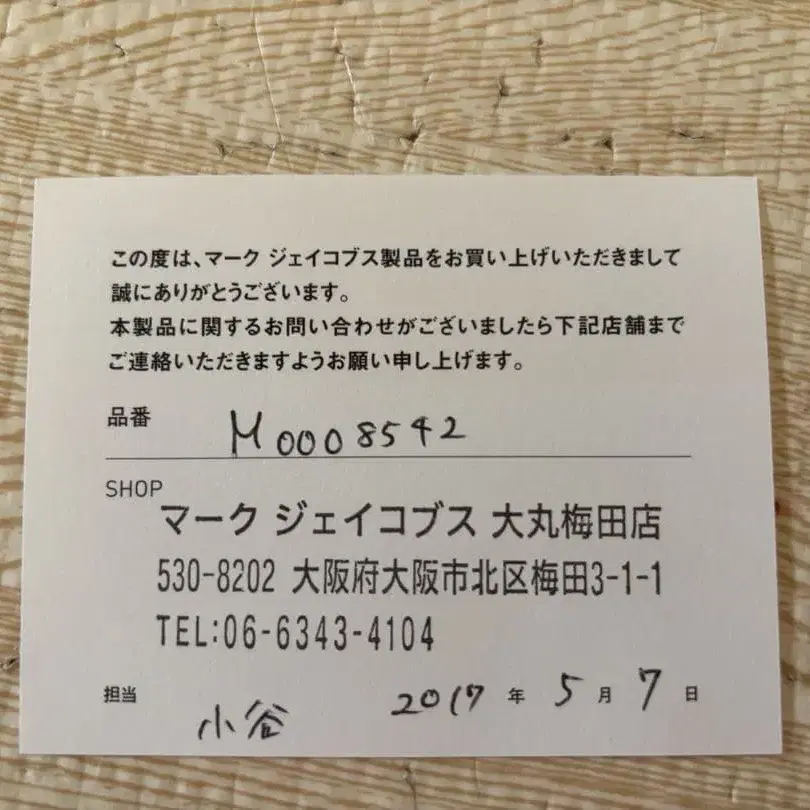 この度は、マーク ジェイコブス製品をお買い上げいただきまして
誠にありがとうございます。
本製品に関するお問い合わせがございましたら下記店舗まで
ご連絡いただきますようお願い申し上げます。
品番 M0008542
SHOP
マーク ジェイコブス 大丸梅田店
530-8202 大阪府大阪市北区梅田3-1-1
TEL:06-6343-4104
担当 小谷 2017年5月7日